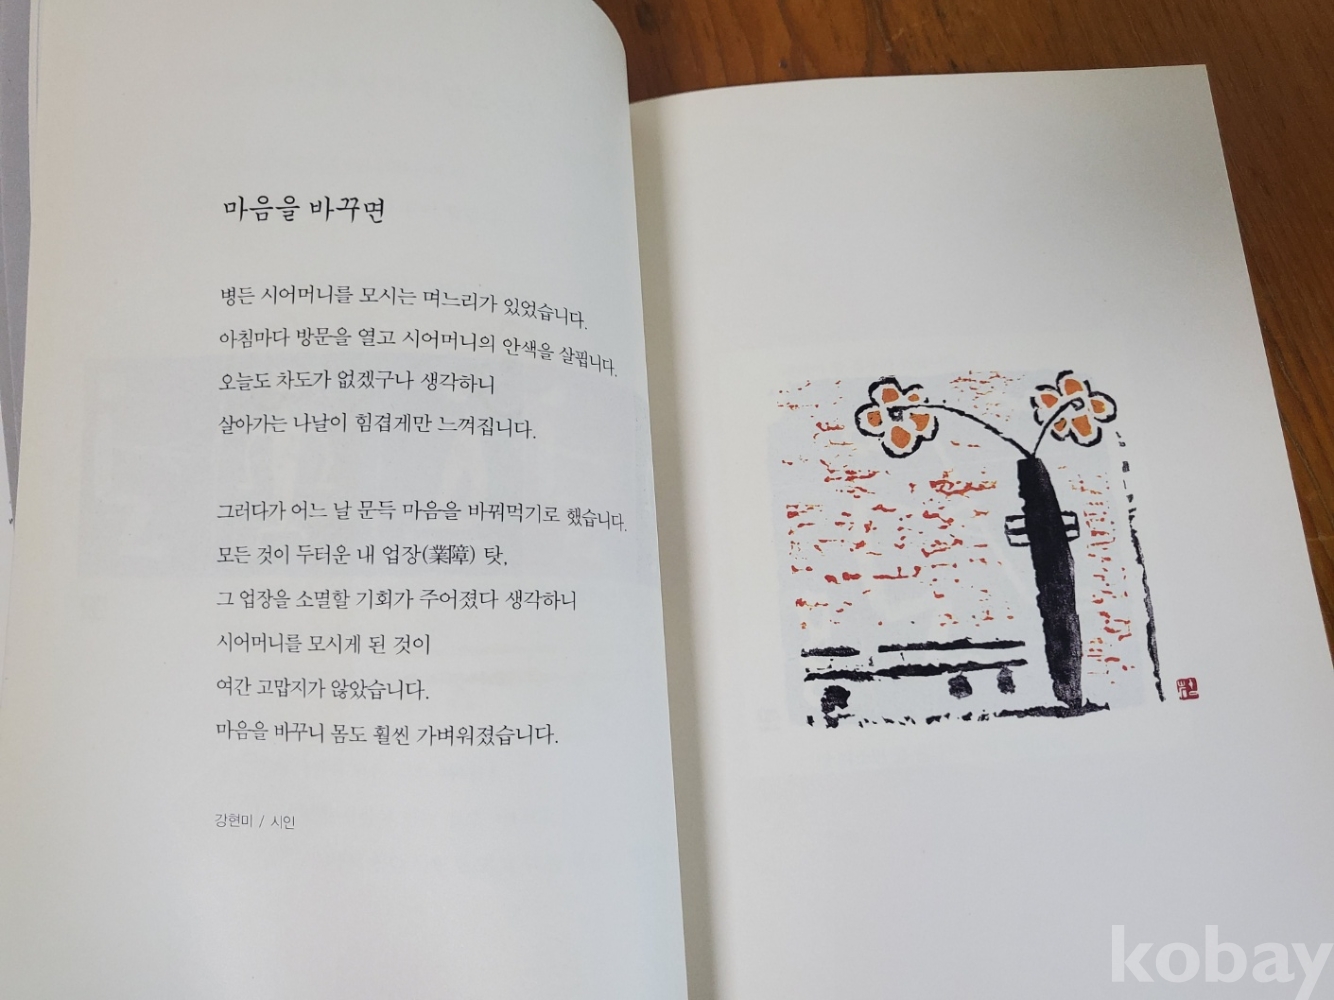 마음을 바꾸면
병든 시어머니를 모시는 며느리가 있었습니다.
아침마다 방문을 열고 시어머니의 안색을 살핍니다.
오늘도 차도가 없겠구나 생각하니
살아가는 나날이 힘겹게만 느껴집니다.
그러다가 어느 날 문득 마음을 바꿔먹기로 했습니다.
모든 것이 두터운 내 업장(業障) 탓,
그 업장을 소멸할 기회가 주어졌다 생각하니
시어머니를 모시게 된 것이
여간 고맙지가 않았습니다.
마음을 바꾸니 몸도 훨씬 가벼워졌습니다.
강현미 / 시인
kobay